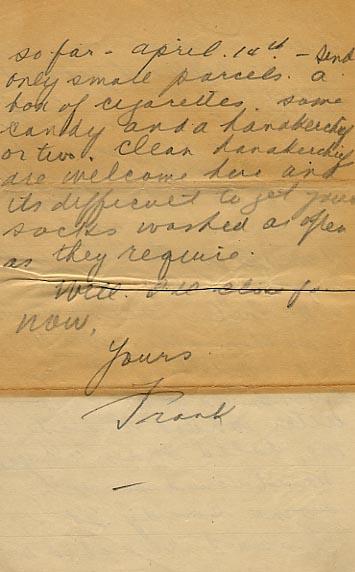 so far - april. 14th - send
only small parcels. a
box of cigarettes. some
candy and a handkerchief
or two. Clean handkerchiefs
are welcome here and
its difficult to get your
socks washed as often
as they require.
Well. I'll close for
now,
Yours
Frank